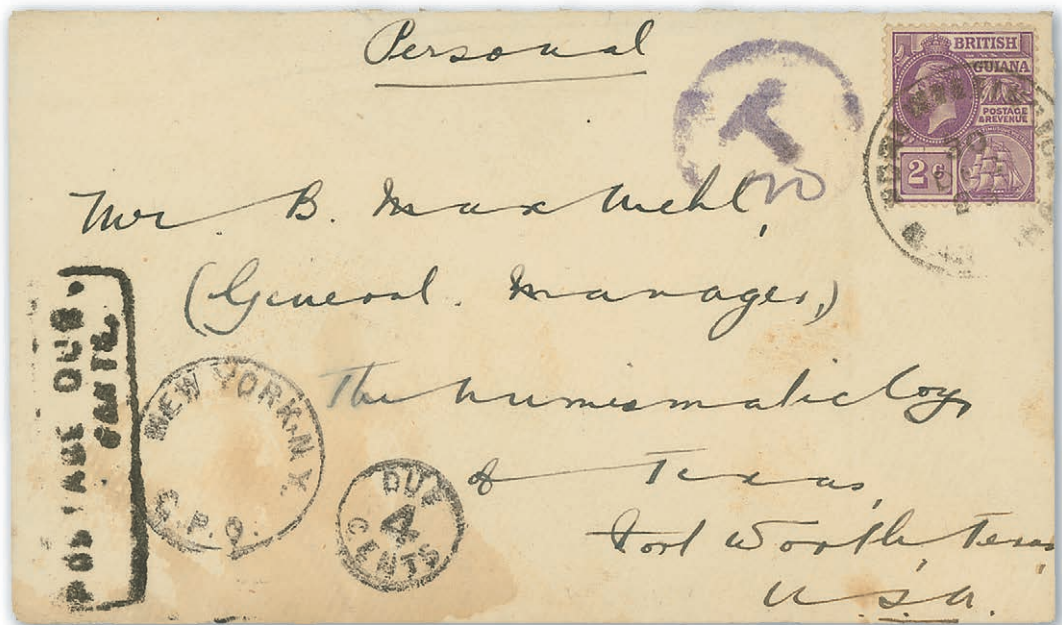 Personal
BRITISH
GUIANA
POSTAGE
& REVENUE
2c
T
20
Mr B. Max Mehl,
(General Manager,)
The Numismatic Coy
of Texas,
Fort Worth Texas
U.S.A.
POSTAGE DUE,
CENTS.
NEW YORK, N.Y.
G.P.O.
DUE
4
CENTS